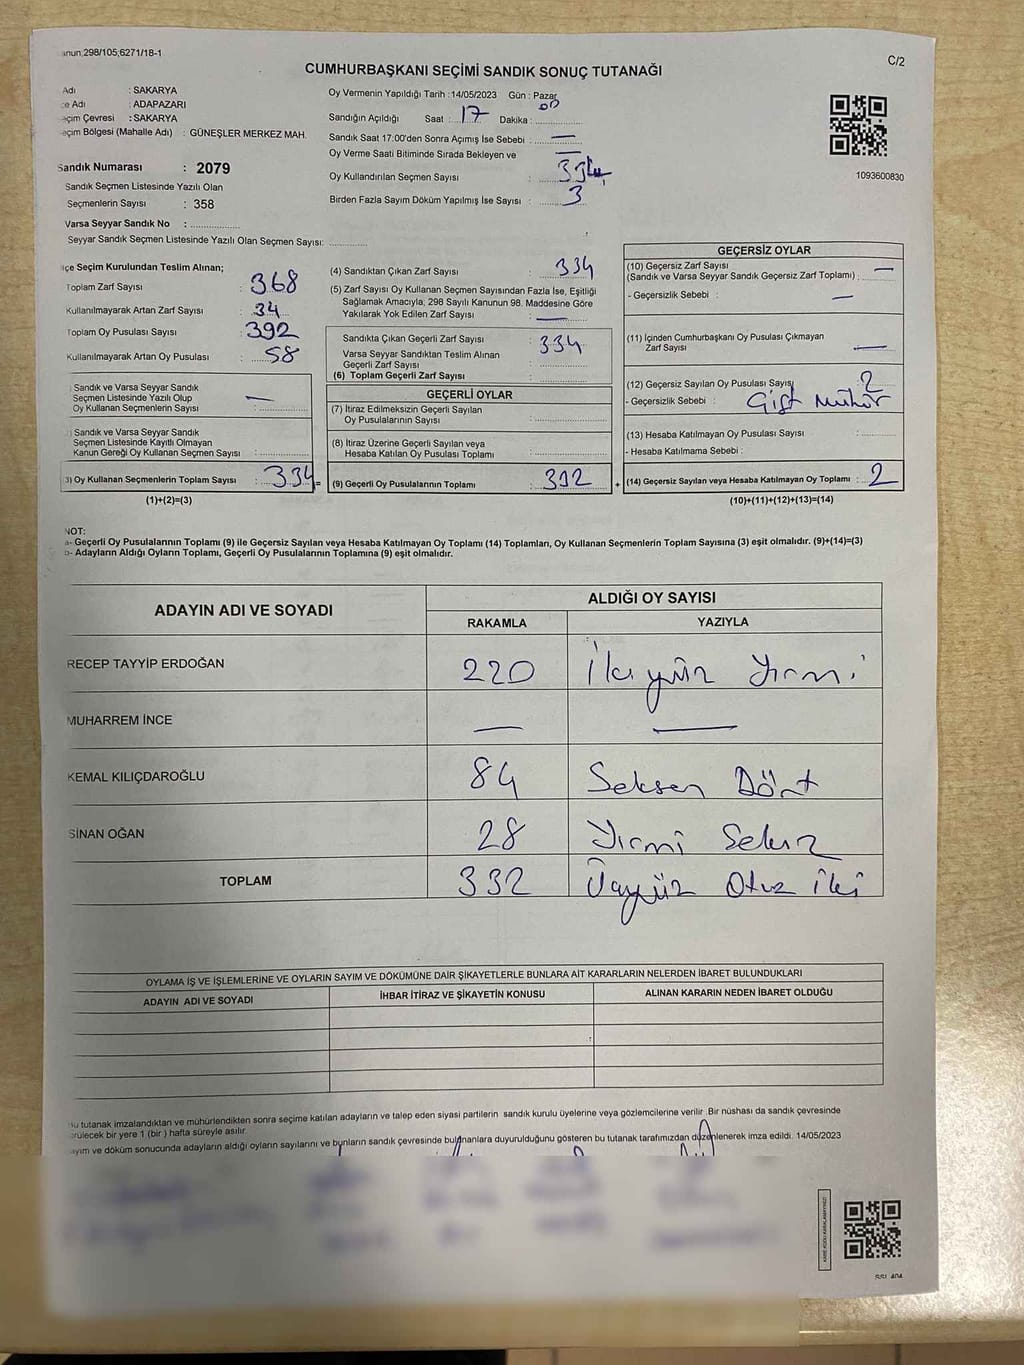 anun;298/105;6271/18-1
C/2
CUMHURBAŞKANI SEÇİMİ SANDIK SONUÇ TUTANAĞI
Adı : SAKARYA
çe Adı : ADAPAZARI
eçim Çevresi : SAKARYA
eçim Bölgesi (Mahalle Adı) : GÜNEŞLER MERKEZ MAH.
Sandık Numarası : 2079
Sandık Seçmen Listesinde Yazılı Olan
Seçmenlerin Sayısı : 358
Varsa Seyyar Sandık No :
Seyyar Sandık Seçmen Listesinde Yazılı Olan Seçmen Sayısı:
Oy Vermenin Yapıldığı Tarih :14/05/2023 Gün : Pazar
Sandığın Açıldığı Saat : 17 Dakika : 00
Sandık Saat 17:00'den Sonra Açımış İse Sebebi : —
Oy Verme Saati Bitiminde Sırada Bekleyen ve —
Oy Kullandırılan Seçmen Sayısı : 334
Birden Fazla Sayım Döküm Yapılmış İse Sayısı : 3
1093600830
lçe Seçim Kurulundan Teslim Alınan;
Toplam Zarf Sayısı : 368
Kullanılmayarak Artan Zarf Sayısı : 34
Toplam Oy Pusulası Sayısı : 392
Kullanılmayarak Artan Oy Pusulası : 58
) Sandık ve Varsa Seyyar Sandık
Seçmen Listesinde Yazılı Olup
Oy Kullanan Seçmenlerin Sayısı : —
) Sandık ve Varsa Seyyar Sandık
Seçmen Listesinde Kayıtlı Olmayan
Kanun Gereği Oy Kullanan Seçmen Sayısı :
3) Oy Kullanan Seçmenlerin Toplam Sayısı : 334 =
(1)+(2)=(3)
(4) Sandıktan Çıkan Zarf Sayısı : 334
(5) Zarf Sayısı Oy Kullanan Seçmen Sayısından Fazla İse, Eşitliği
Sağlamak Amacıyla, 298 Sayılı Kanunun 98. Maddesine Göre
Yakılarak Yok Edilen Zarf Sayısı : —
Sandıkta Çıkan Geçerli Zarf Sayısı : 334
Varsa Seyyar Sandıktan Teslim Alınan
Geçerli Zarf Sayısı :
(6) Toplam Geçerli Zarf Sayısı :
GEÇERLİ OYLAR
(7) İtiraz Edilmeksizin Geçerli Sayılan
Oy Pusulalarının Sayısı :
(8) İtiraz Üzerine Geçerli Sayılan veya
Hesaba Katılan Oy Pusulası Toplamı :
(9) Geçerli Oy Pusulalarının Toplamı : 332 +
GEÇERSİZ OYLAR
(10) Geçersiz Zarf Sayısı
(Sandık ve Varsa Seyyar Sandık Geçersiz Zarf Toplamı) : —
- Geçersizlik Sebebi : —
(11) İçinden Cumhurbaşkanı Oy Pusulası Çıkmayan
Zarf Sayısı : —
(12) Geçersiz Sayılan Oy Pusulası Sayısı : 2
- Geçersizlik Sebebi : Çift Mühür
(13) Hesaba Katılmayan Oy Pusulası Sayısı :
- Hesaba Katılmama Sebebi :
(14) Geçersiz Sayılan veya Hesaba Katılmayan Oy Toplamı : 2
(10)+(11)+(12)+(13)=(14)
NOT:
a- Geçerli Oy Pusulalarının Toplamı (9) ile Geçersiz Sayılan veya Hesaba Katılmayan Oy Toplamı (14) Toplamları, Oy Kullanan Seçmenlerin Toplam Sayısına (3) eşit olmalıdır. (9)+(14)=(3)
b- Adayların Aldığı Oyların Toplamı, Geçerli Oy Pusulalarının Toplamına (9) eşit olmalıdır.
ADAYIN ADI VE SOYADI
ALDIĞI OY SAYISI
RAKAMLA YAZIYLA
RECEP TAYYİP ERDOĞAN 220 İkiyüz Yirmi
MUHARREM İNCE — —
KEMAL KILIÇDAROĞLU 84 Seksen Dört
SİNAN OĞAN 28 Yirmi Sekiz
TOPLAM 332 Üçyüz Otuz iki
OYLAMA İŞ VE İŞLEMLERİNE VE OYLARIN SAYIM VE DÖKÜMÜNE DAİR ŞİKAYETLERLE BUNLARA AİT KARARLARIN NELERDEN İBARET BULUNDUKLARI
ADAYIN ADI VE SOYADI İHBAR İTİRAZ VE ŞİKAYETİN KONUSU ALINAN KARARIN NEDEN İBARET OLDUĞU
Bu tutanak imzalandıktan ve mühürlendikten sonra seçime katılan adayların ve talep eden siyasi partilerin sandık kurulu üyelerine veya gözlemcilerine verilir .Bir nüshası da sandık çevresinde
örülecek bir yere 1 (bir ) hafta süreyle asılır.
ayım ve döküm sonucunda adayların aldığı oyların sayılarını ve bunların sandık çevresinde bulunanlara duyurulduğunu gösteren bu tutanak tarafımızdan düzenlenerek imza edildi. 14/05/2023